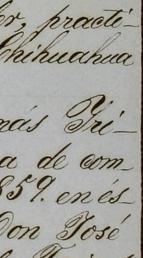 er, practi-
Chihuahua
más Tri-
a de com-
859. en és-
Don José